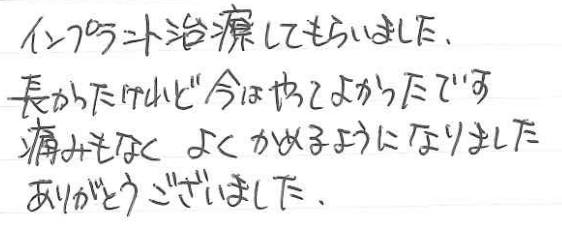 インプラント治療してもらいました、
長かったけれど今はやってよかったです
痛みもなく よくかめるようになりました
ありがとうございました、